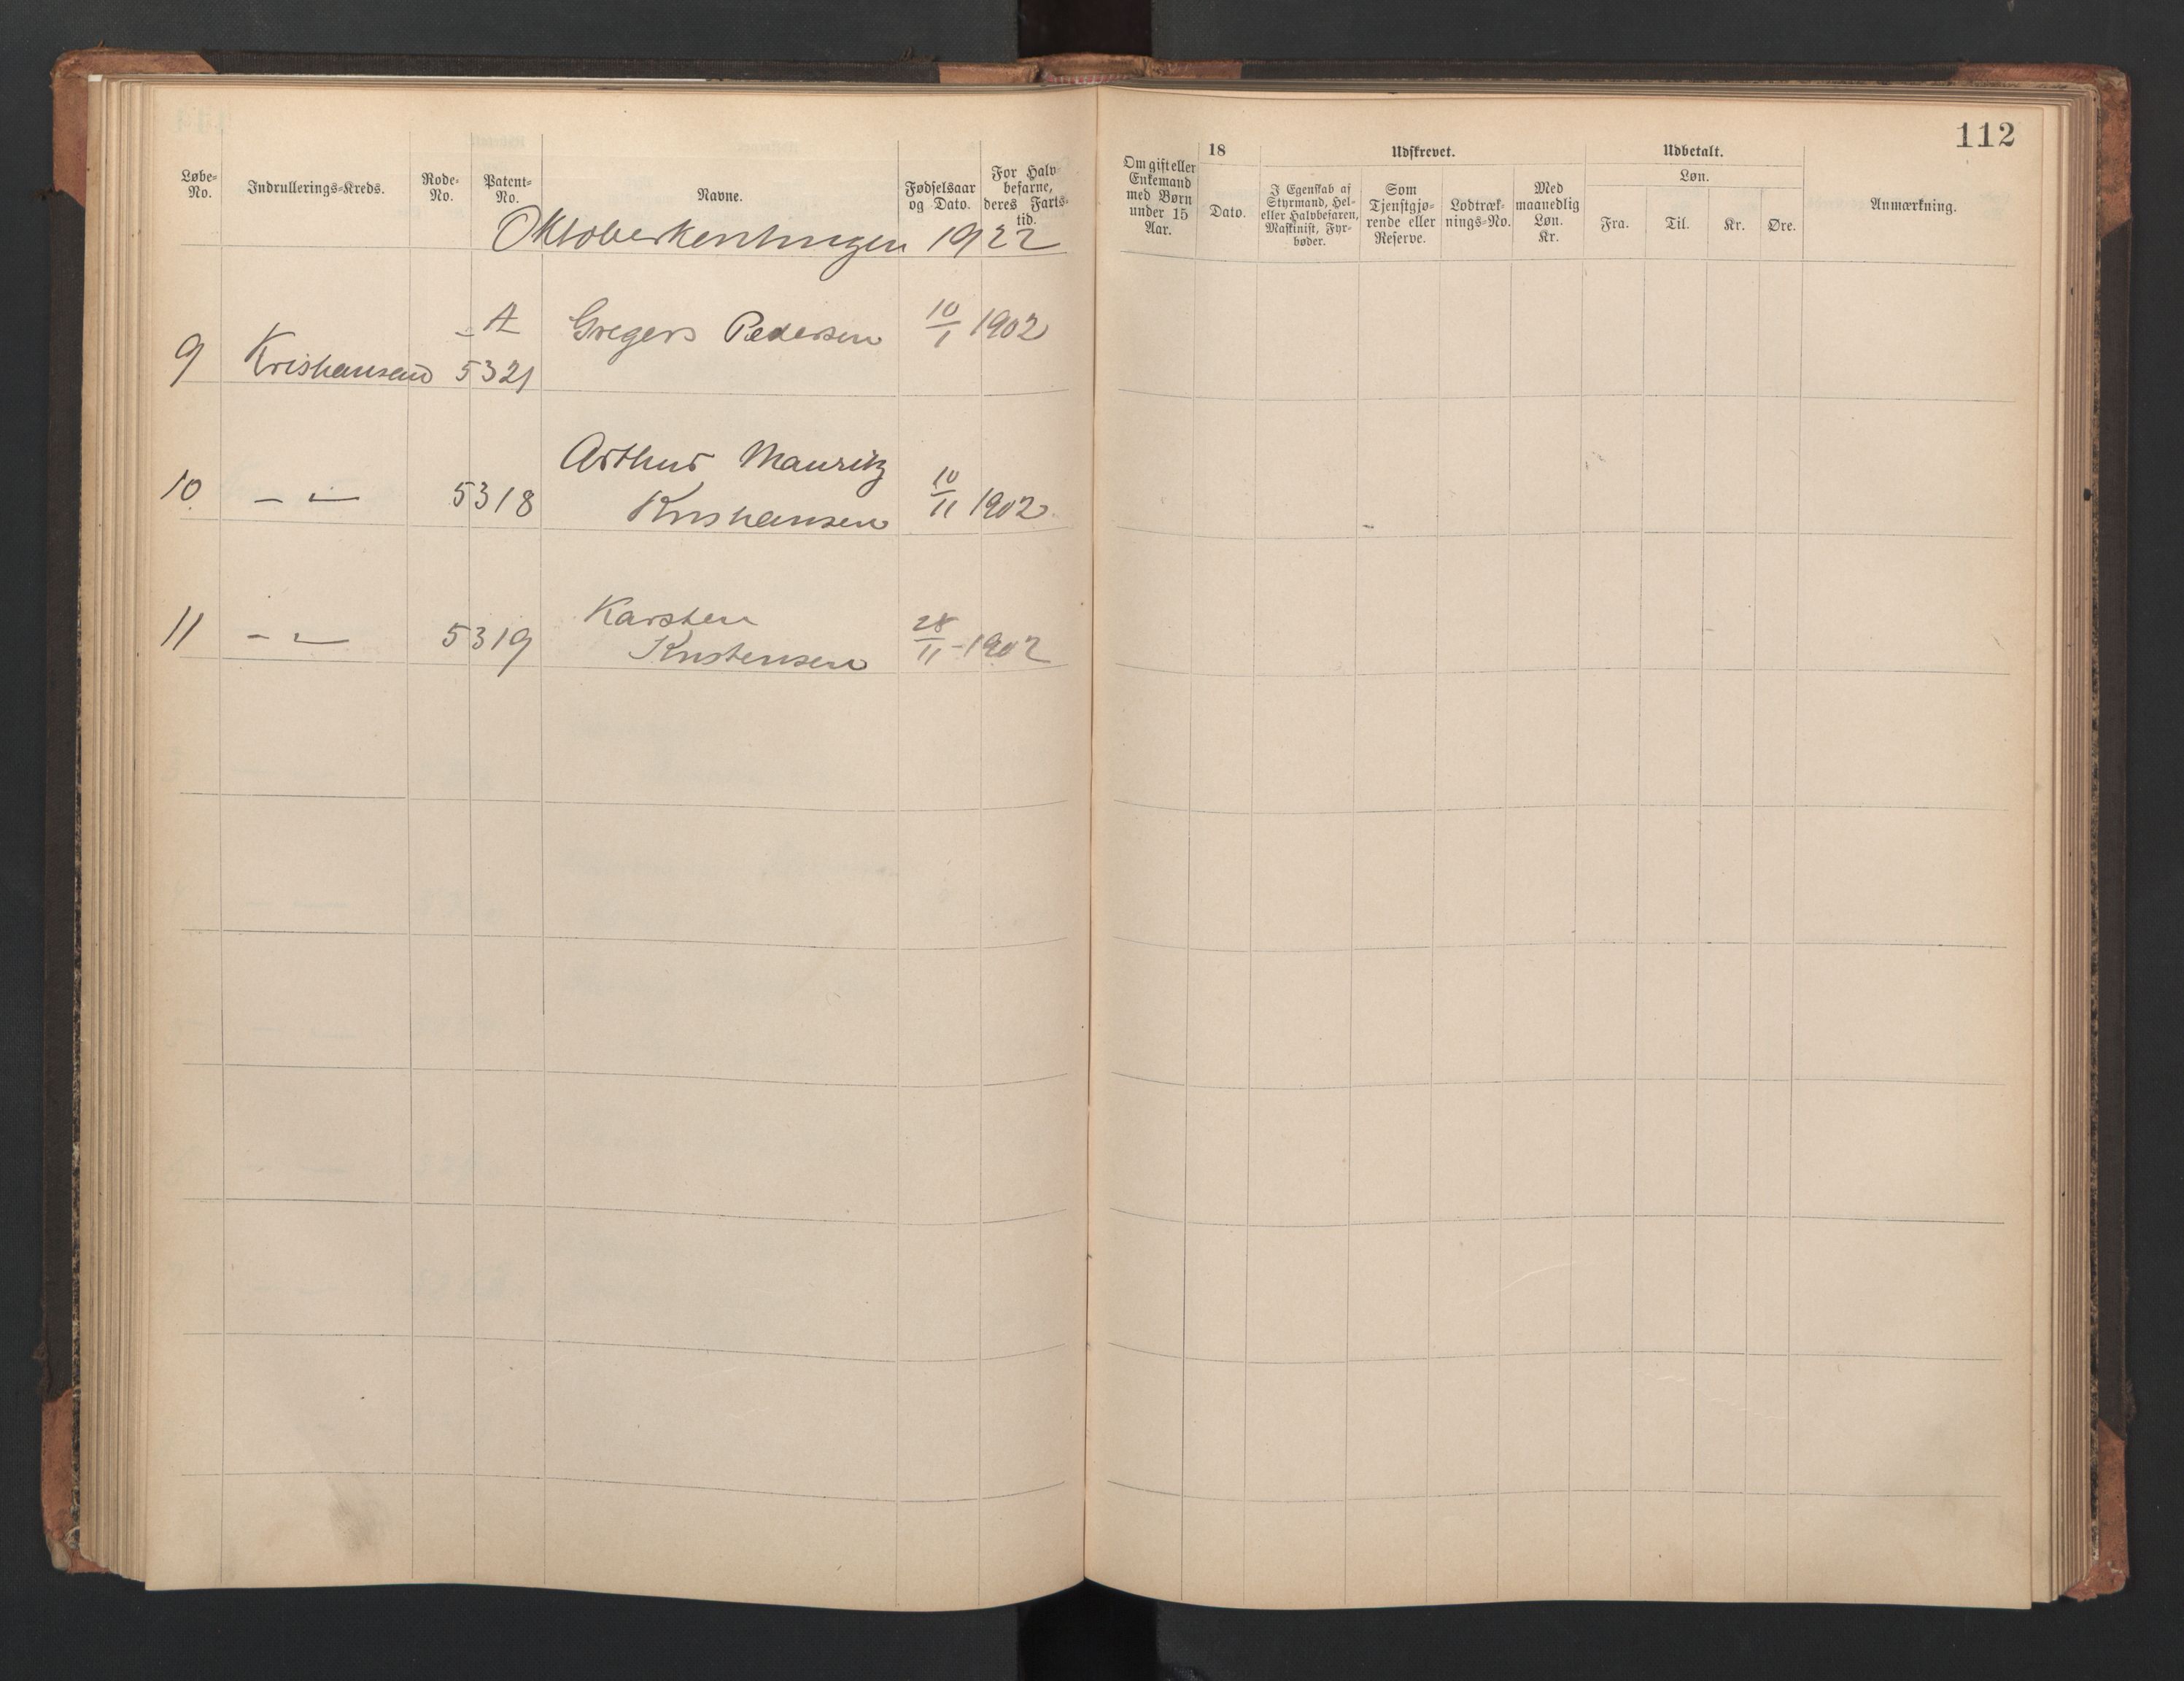 112
Løbe-No. Indrullerings-Kreds. Rode-No. Patent-No. Navne. Fødselsaar og Dato. For Halvbefarne, deres Fartstid.
Om gift eller Enkemand med Børn under 15 Aar. 18 Dato. Udskrevet. I Egenskab af Styrmand, Hel- eller Halvbefaren, Maskinist, Fyrbøder. Som Tjenstgjørende eller Reserve. Lodtræknings-No. Med maanedlig Løn. Kr. Udbetalt. Løn. Fra. Til. Kr. Øre. Anmærkning.
Oktoberhentningen 1922
A Gregers Pedersen 10/1 1902
9 Kristiansand 5321
Arthur Mauritz
10 — — 5318 Kristiansen 10/11 1902
Karsten
11 — — 5319 Kristensen 28/11 - 1902